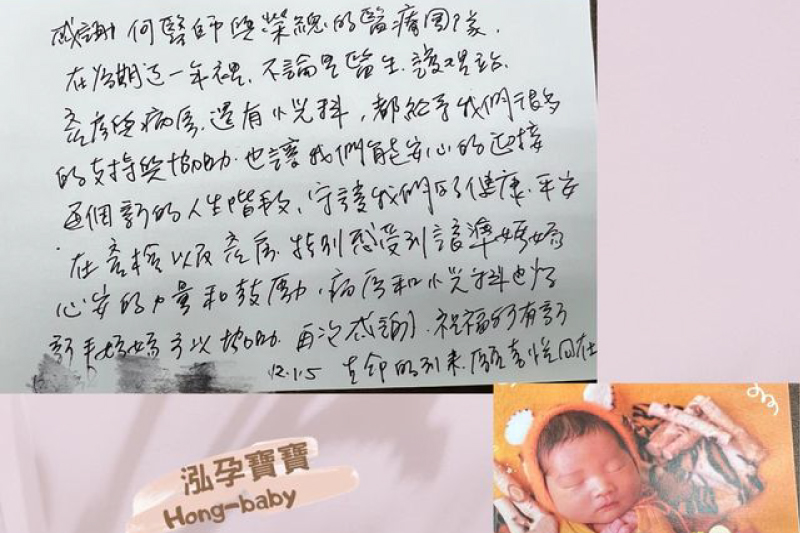 感謝何醫師與榮總的醫療團隊，
在孕期這一年裡，不論是醫生、護理站、
產房與病房，還有小兒科，都給予我們很多
的支持與協助，也讓我們能安心的迎接
這個新的人生階段，守護我們的健康、平安
在產檢以及產房，特別感受到讓準媽媽
心安的力量和鼓勵，病房和小兒科也給
新手媽媽予以協助，再次感謝，祝福所有新
生命的到來，喜悅同在
12.1.5
泓孕寶寶
Hong-baby